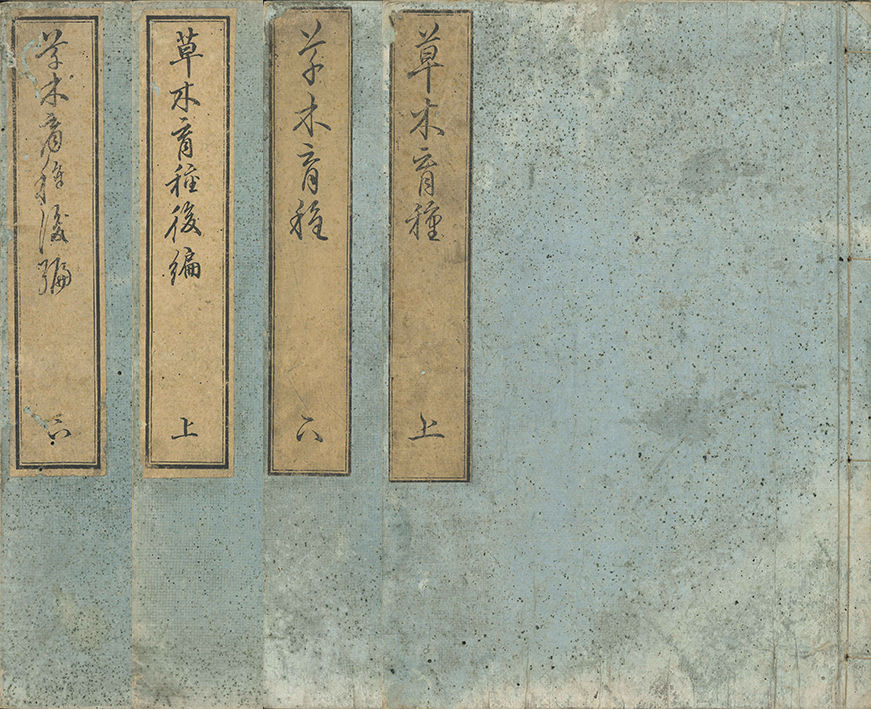 草木育種
上
草木育種
下
草木育種後編
上
草木育種後編
下